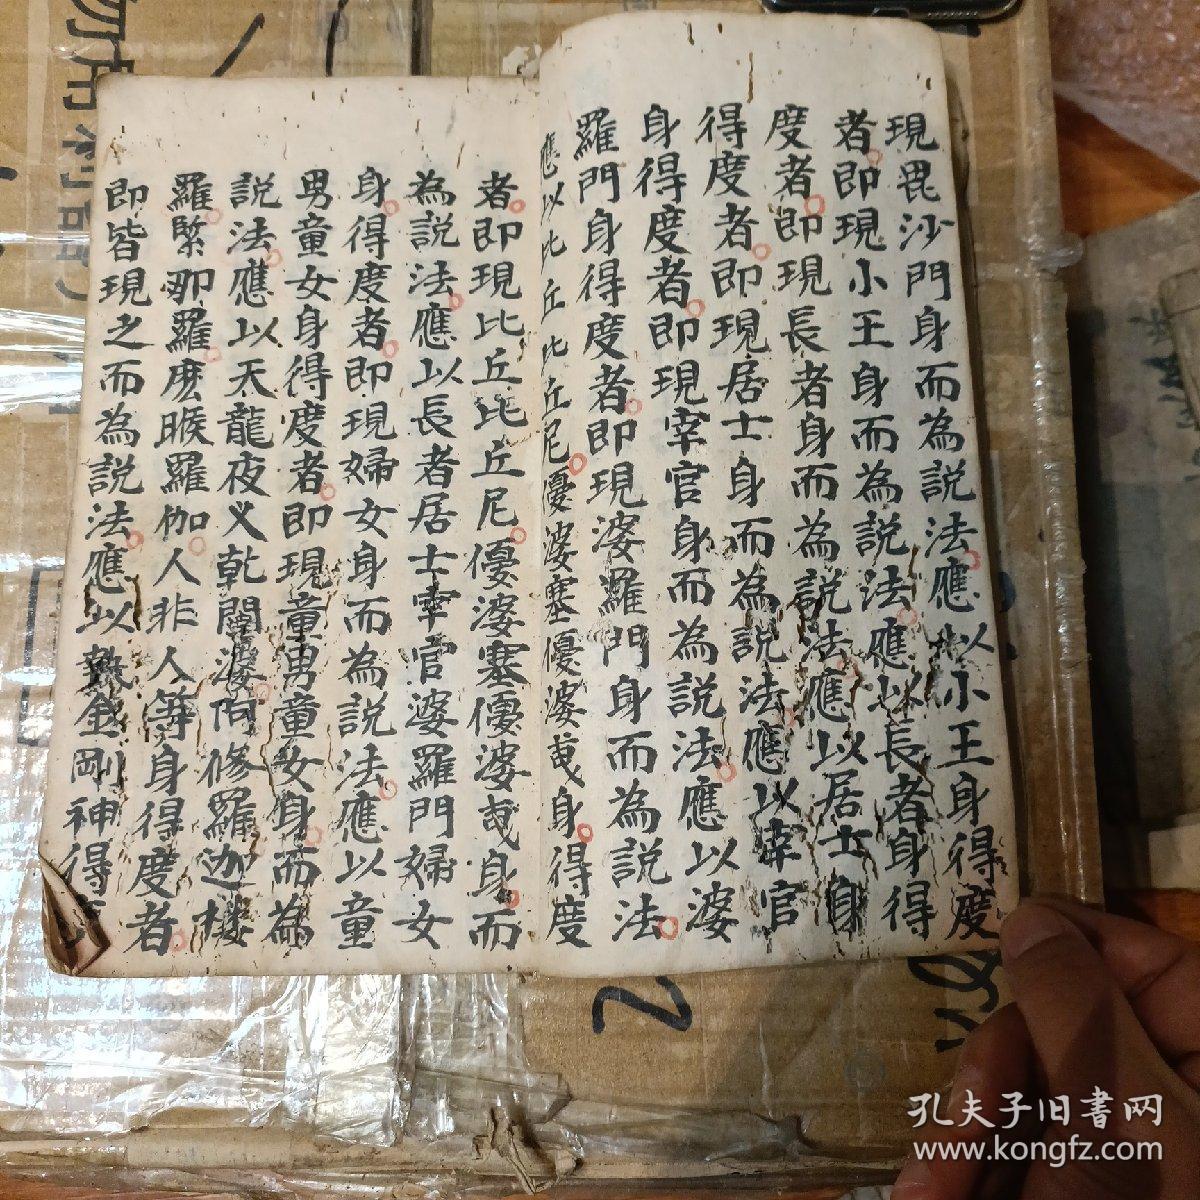 現毘沙門身而為說法應以小王身得度
者即現小王身而為說法應以長者身得
度者即現長者身而為說法應以居士身
得度者即現居士身而為說法應以宰官
身得度者即現宰官身而為說法應以婆
羅門身得度者即現婆羅門身而為說法
應以比丘比丘尼優婆塞優婆夷身得度
者即現比丘比丘尼優婆塞優婆夷身而
為說法應以長者居士宰官婆羅門婦女
身得度者即現婦女身而為說法應以童
男童女身得度者即現童男童女身而為
說法應以天龍夜义乾闥婆阿修羅迦樓
羅緊那羅麽睺羅伽人非人等身得度者
即皆現之而為說法應以執金剛神得
孔夫子旧書网
www.kongfz.com